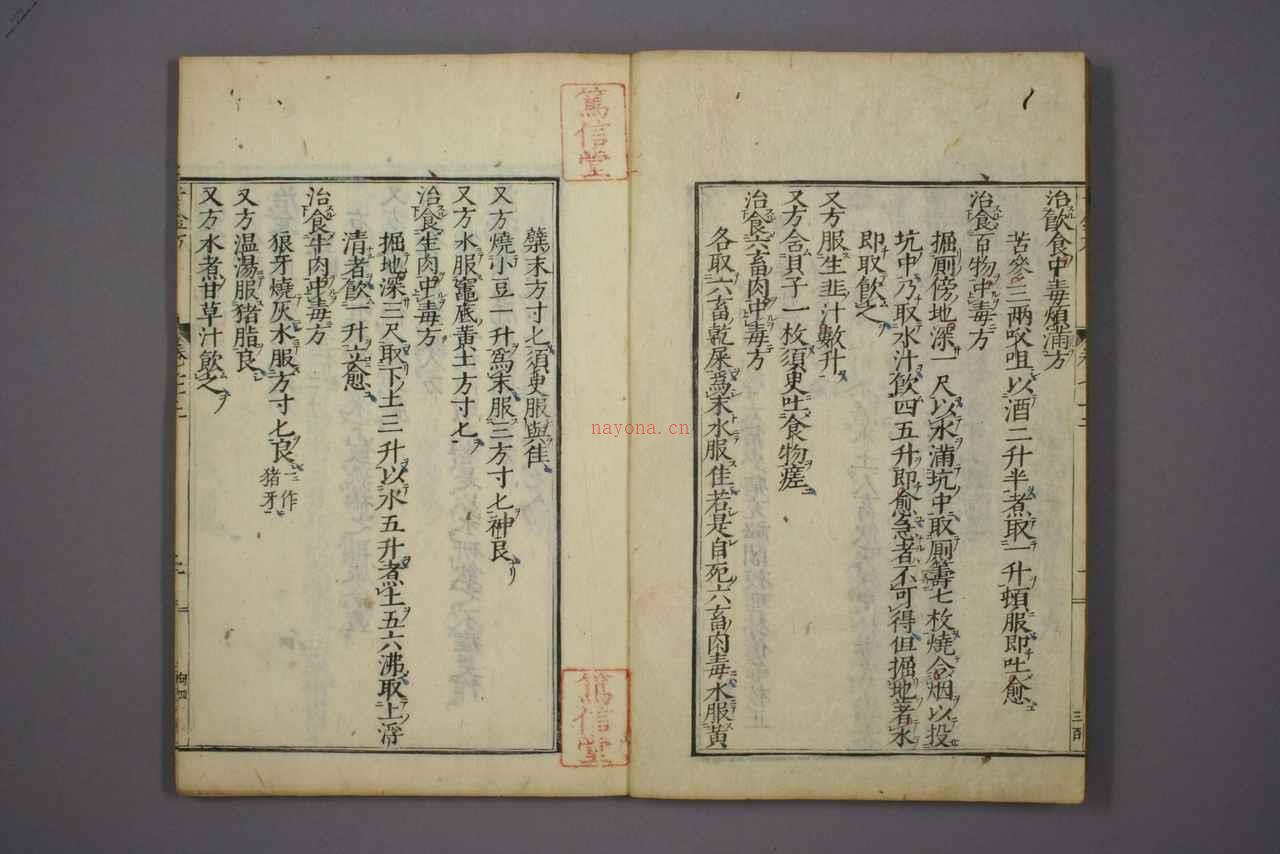 治飲食中毒煩滿方
苦參三兩㕮咀以酒二升半煮取一升頓服即吐愈
治食百物中毒方
掘厠傍地深一尺以水滿坑中取厠籌七枚燒令烟以投
坑中乃取水汁飲四五升即愈急者不可得但掘地著水
即取飲之
又方服生韮汁數升
又方含貝子一枚須臾吐食物瘥
治食六畜肉中毒方
各取六畜乾屎爲末水服佳若是自死六畜肉毒水服黃
三百
篤信堂
篤信堂
nayona.cn
蘗末方寸匕須臾服與佳
又方燒小豆一升爲末服三方寸匕神良
又方水服竈底黃土方寸匕
治食生肉中毒方
掘地深三尺取下土三升以水五升煮土五六沸取上浮
清者飲一升立愈
治食牛肉中毒方
狼牙燒灰水服方寸匕良 一作猪牙
又方温湯服猪脂良
又方水煮甘草汁飲之